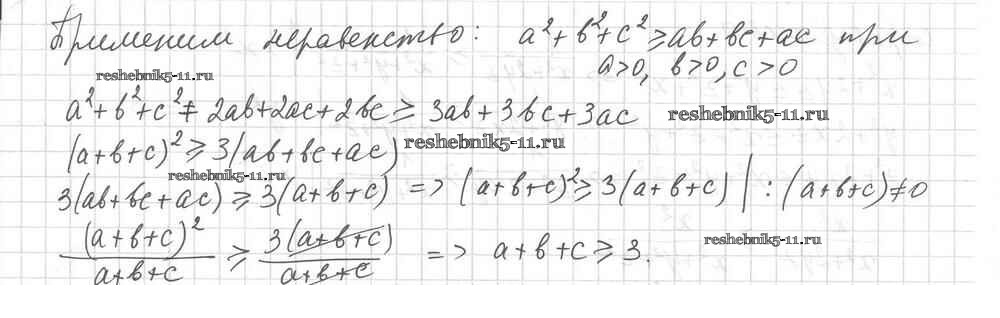 Применим неравенство: a² + b² + c² ≥ ab + bc + ac при
a>0, b>0, c>0
reshebnik5-11.ru
a² + b² + c² + 2ab + 2ac + 2bc ≥ 3ab + 3bc + 3ac reshebnik5-11.ru
(a+b+c)² ≥ 3(ab+bc+ac) reshebnik5-11.ru
reshebnik5-11.ru
3(ab+bc+ac) ≥ 3(a+b+c) => (a+b+c)² ≥ 3(a+b+c) | : (a+b+c) ≠ 0
(a+b+c)²/(a+b+c) ≥ 3(a+b+c)/(a+b+c) => a+b+c ≥ 3.
reshebnik5-11.ru